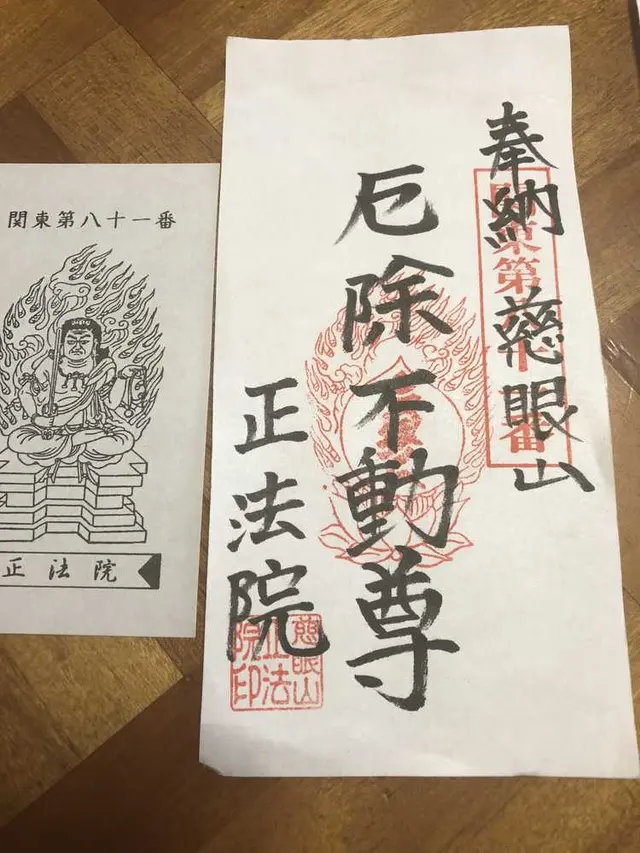 関東第八十一番
正法院
奉納 慈眼山
厄除不動尊
正法院
慈眼山
正法
院印